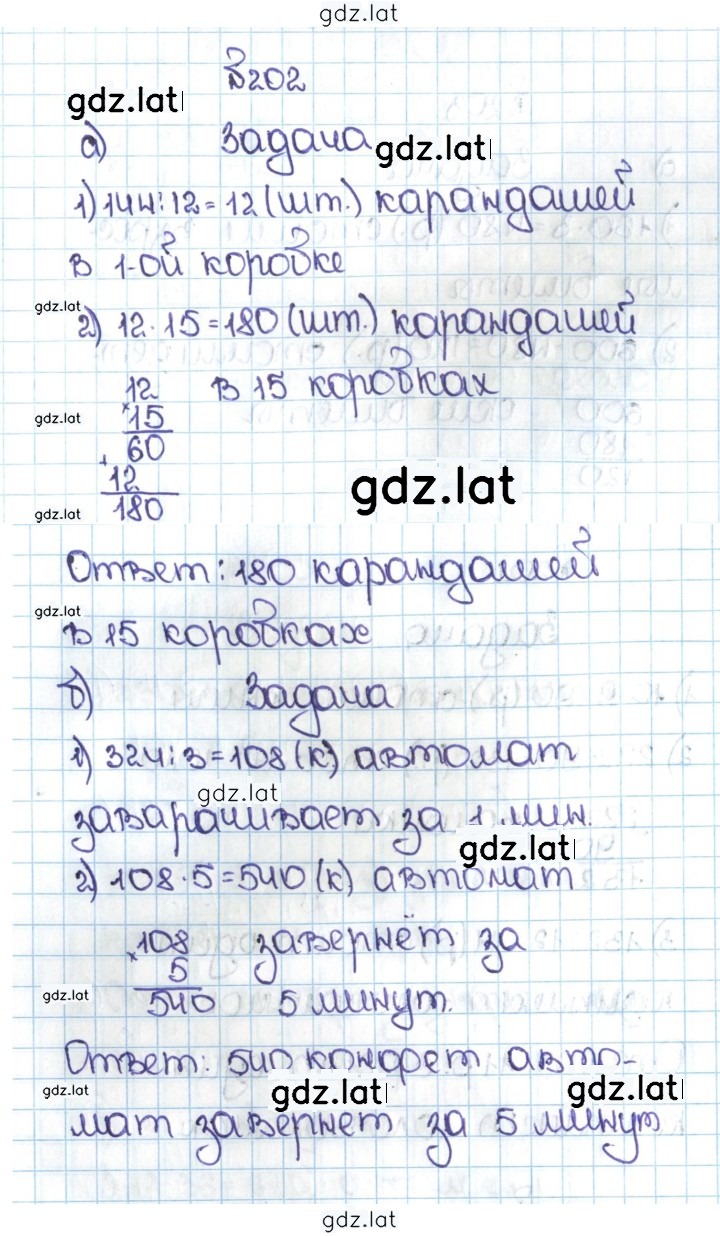 gdz.lat
№202
gdz.lat
а) Задача gdz.lat
1) 144:12=12(шт.) карандашей
в 1-ой коробке
gdz.lat
2) 12·15=180(шт.) карандашей
12 в 15 коробках
gdz.lat
×15
60
+12
gdz.lat
gdz.lat 180
Ответ: 180 карандашей
gdz.lat
в 15 коробках
б) Задача
1) 324:3=108(к) автомат
gdz.lat
заварачивает за 1 мин.
gdz.lat
2) 108·5=540(к) автомат
×108 завернёт за
5
gdz.lat 540 5 минут.
Ответ: 540 конфет авто-
gdz.lat gdz.lat gdz.lat
мат завернет за 5 минут
gdz.lat